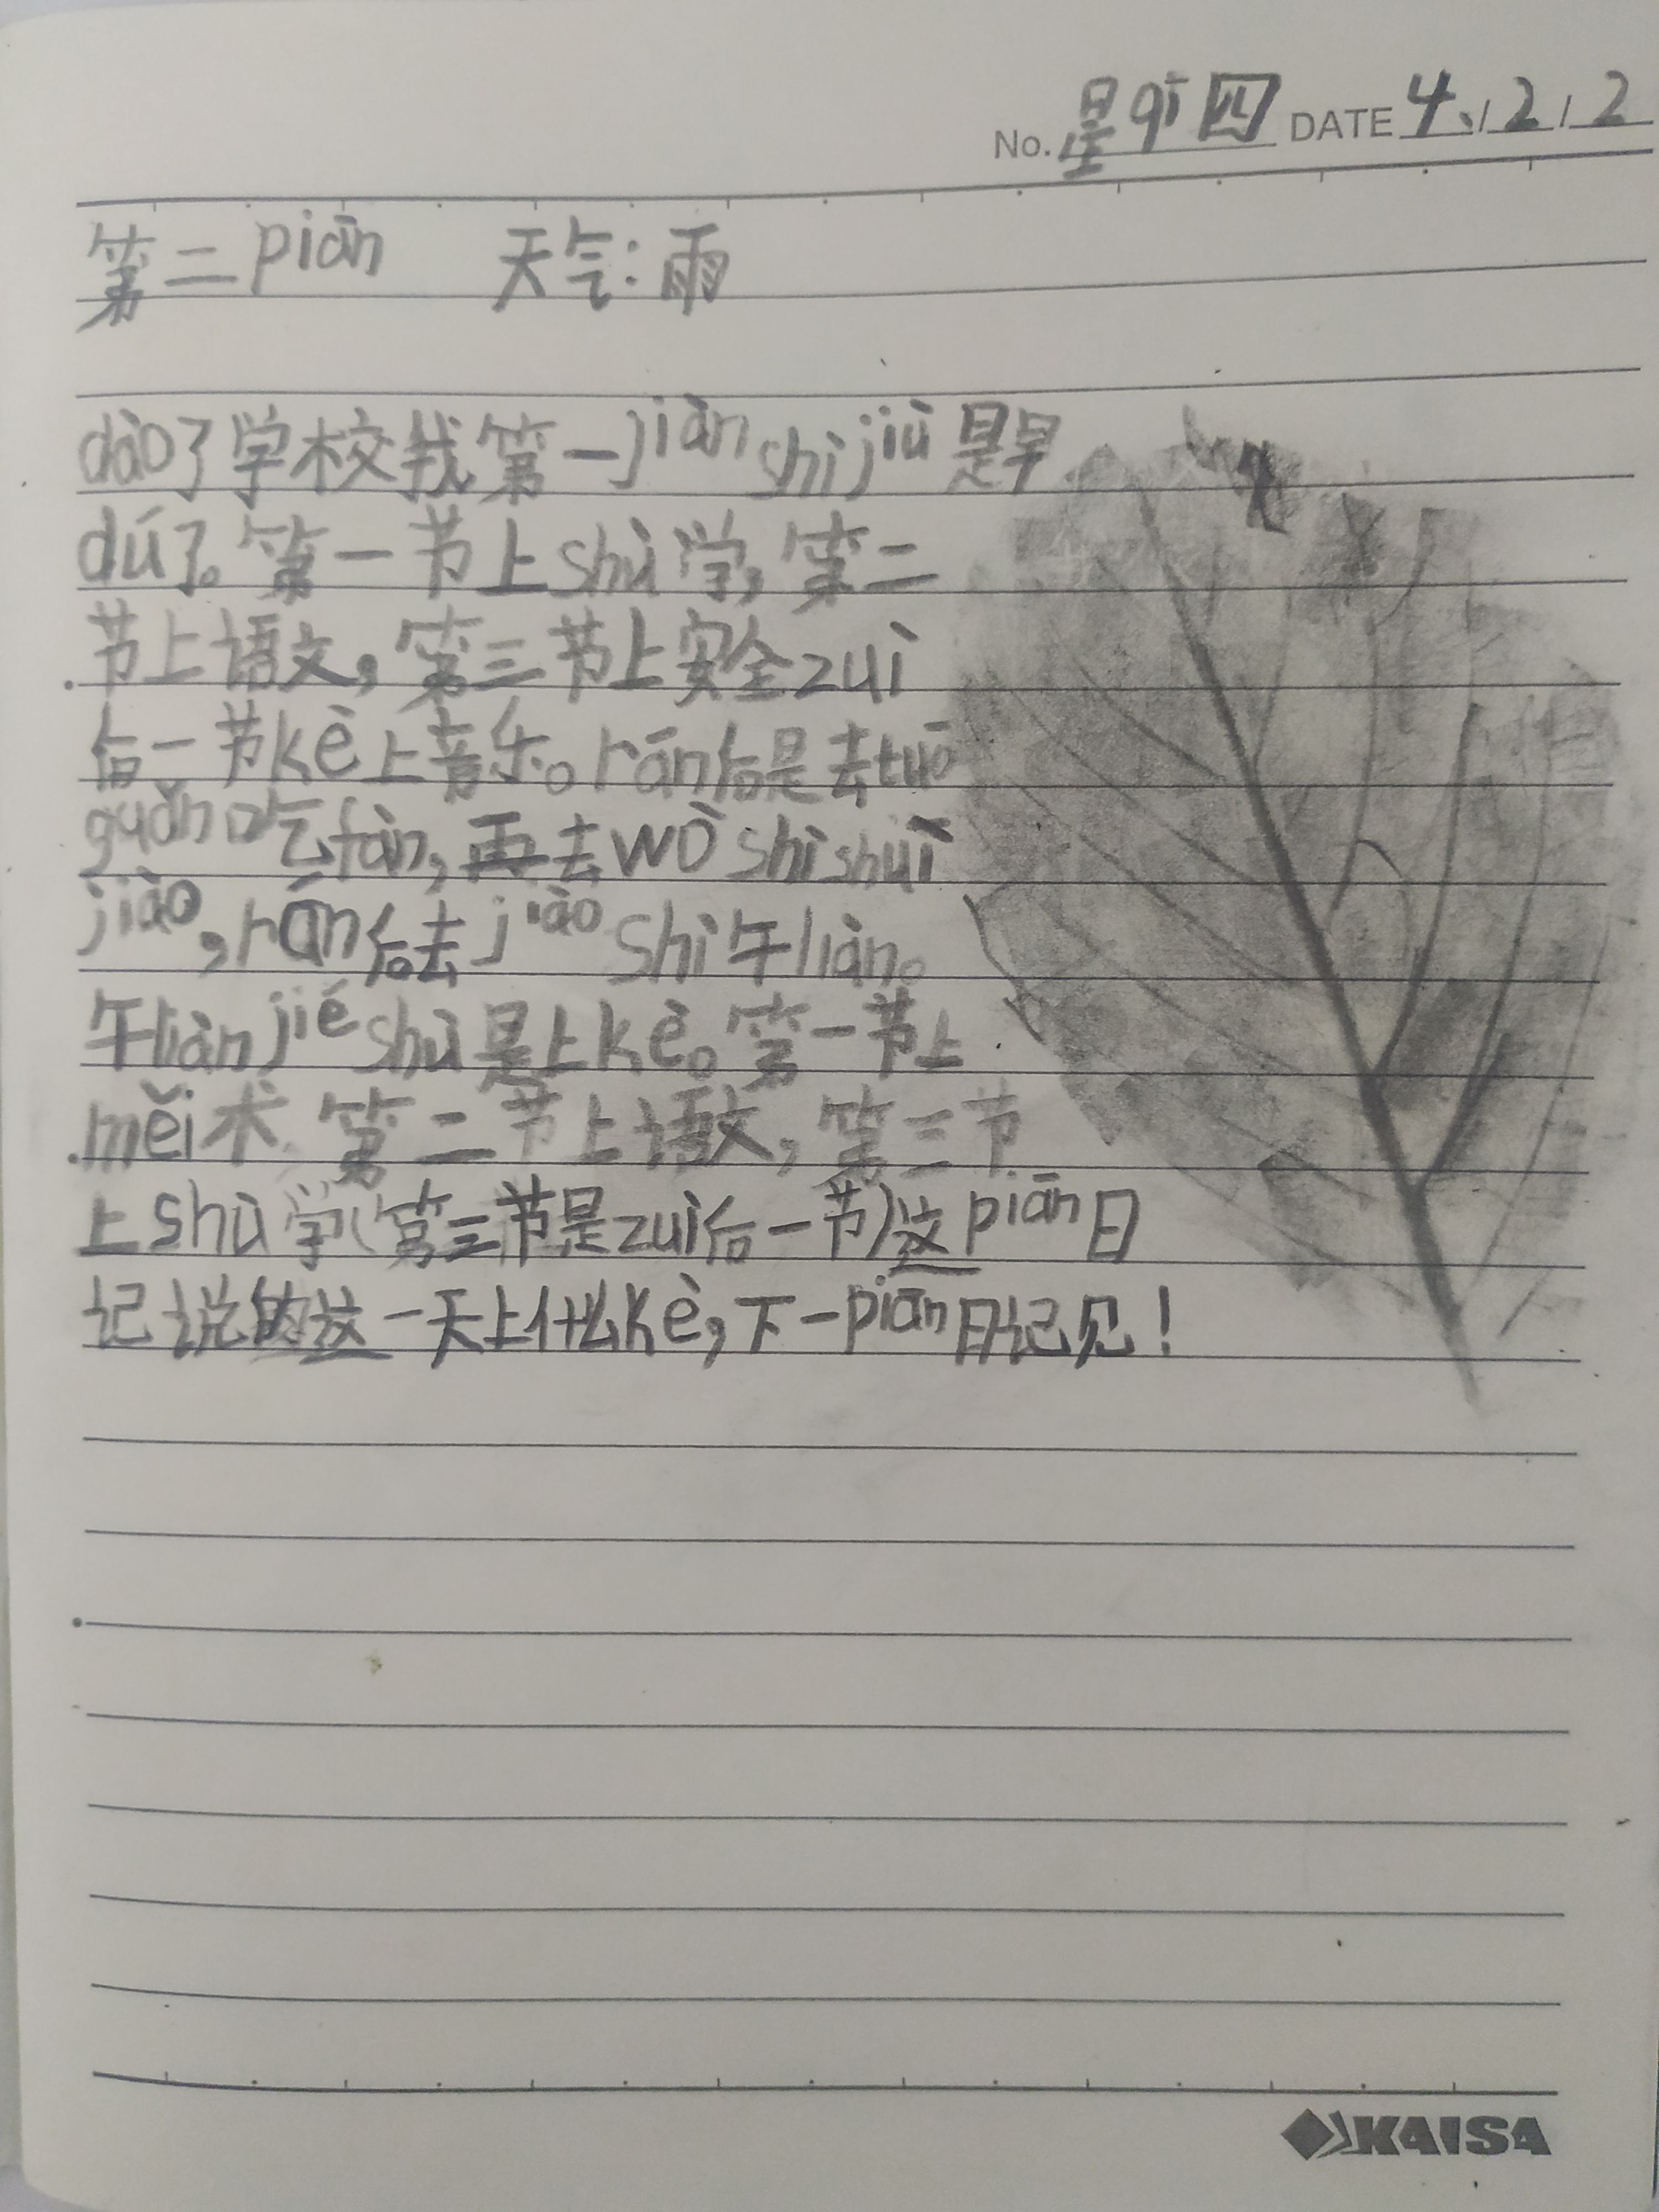 No. 星qī四 DATE 4、/2/2
第二piān 天气：雨
dào了学校我第一jiàn shì jiù 是早
dú了。第一节上shù学，第二
节上语文，第三节上安全zuì
后一节kè上音乐。rán后是去tuō
guǎn吃fàn，再去wò shì shuì
jiào，rán后去jiào shì午liàn。
午liàn jié shù是上kè。第一节上
měi术 第二节上语文，第三节
上shù学（第三节是zuì后一节）这piān日
记说的这一天上什么kè，下一piān日记见！
KAISA